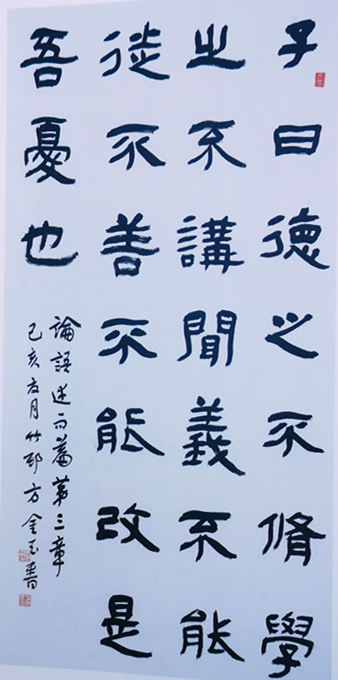 子曰德之不脩學
之不講聞義不能
徙不善不能改是
吾憂也
論語述而篇第三章
己亥月竹邨方金玉書